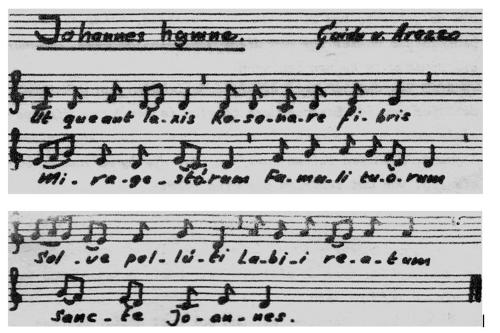 Johannes hymne. Guido v. Arezzo
Ut queant la-xis Re-so-na-re fi-bris
Mi-ra ge-stórum Fa-mu-li tu-ó-rum
Sol-ve pol-lú-ti La-bi-i re-a-tum
Sanc-te Jo-an-nes.